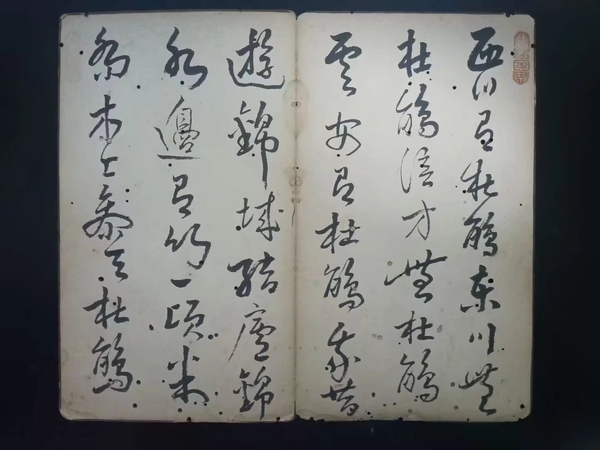 西川有杜鵑東川無
杜鵑涪万無杜鵑
雲安有杜鵑我昔
遊錦城結廬錦
水邊有竹一頃
喬木上參天杜鵑